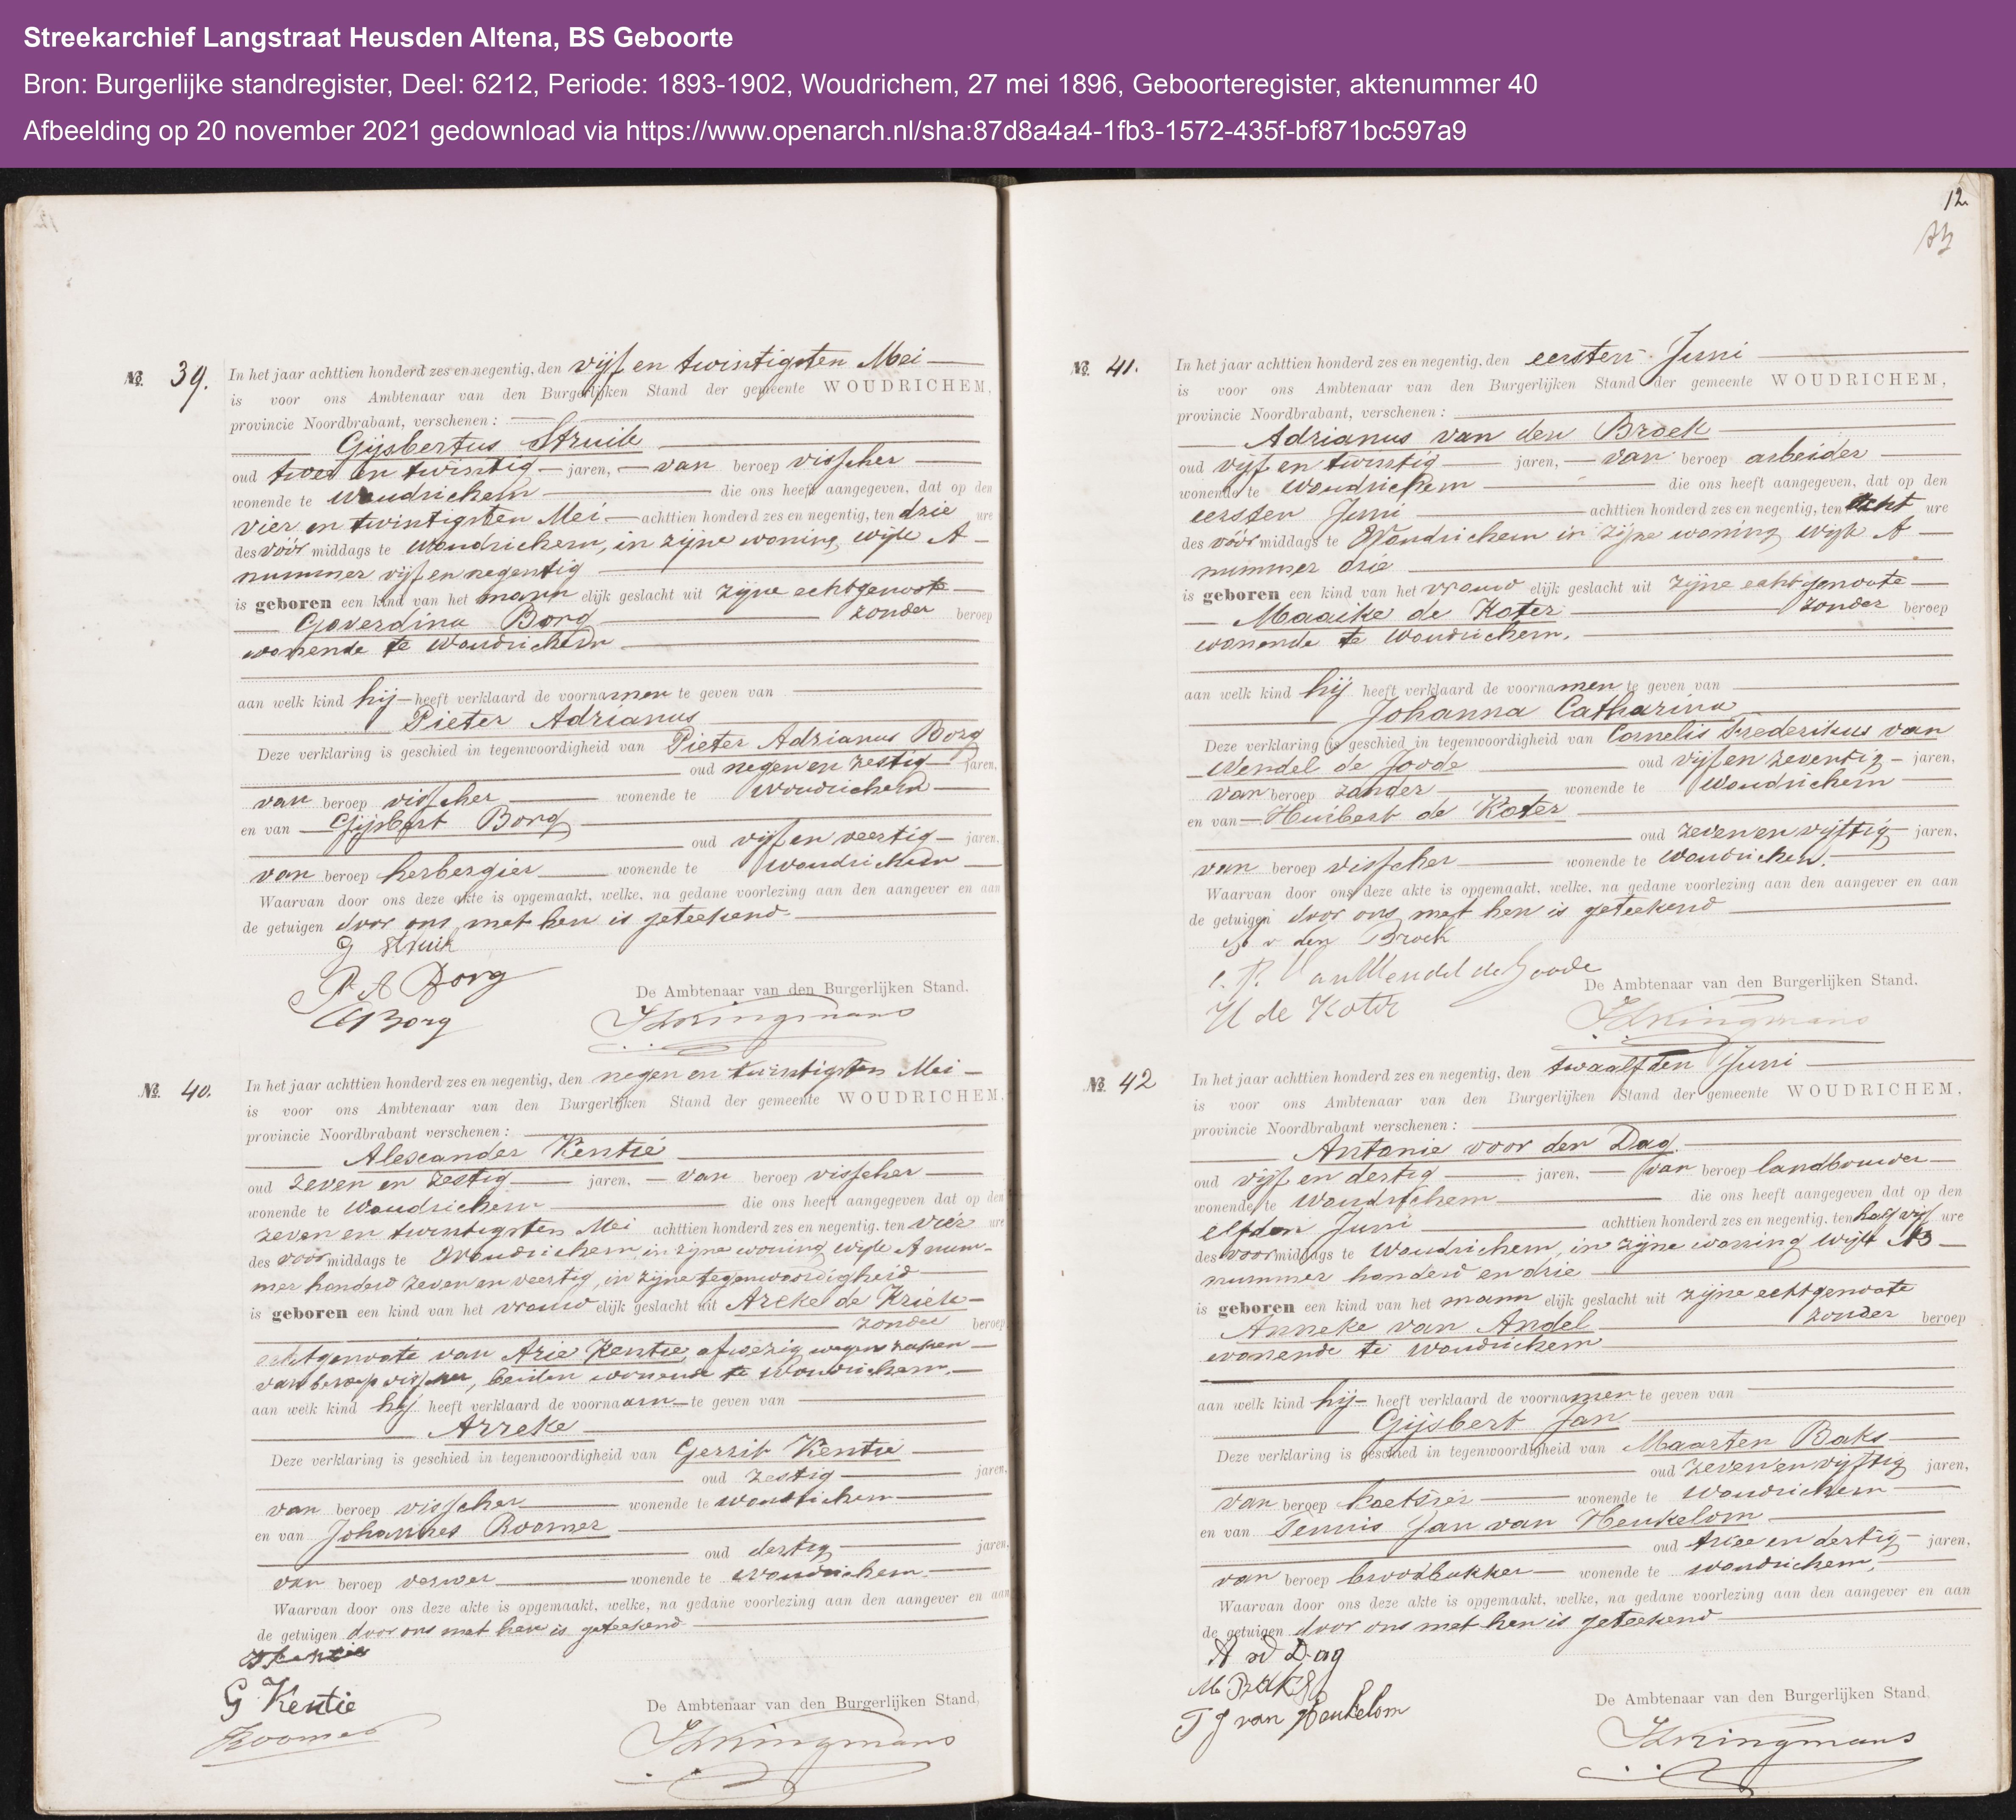 Streekarchief Langstraat Heusden Altena, BS Geboorte
Bron: Burgerlijke standregister, Deel: 6212, Periode: 1893-1902, Woudrichem, 27 mei 1896, Geboorteregister, aktenummer 40
Afbeelding op 20 november 2021 gedownload via https://www.openarch.nl/sha:87d8a4a4-1fb3-1572-435f-bf871bc597a9
No. 39. In het jaar achttien honderd zes en negentig, den vijf en twintigsten Mei
is voor ons Ambtenaar van den Burgerlijken Stand der gemeente WOUDRICHEM,
provincie Noordbrabant, verschenen:
Gijsbertus Struik
oud twee en twintig jaren, van beroep visscher
wonende te Woudrichem die ons heeft aangegeven, dat op den
vier en twintigsten Mei achttien honderd zes en negentig, ten drie ure
des vóór middags te Woudrichem, in zijne woning, wijk A
nummer vijf en negentig
is geboren een kind van het mann elijk geslacht uit zijne echtgenoote
Goverdina Borg zonder beroep
wonende te Woudrichem
aan welk kind hij heeft verklaard de voornamen te geven van
Pieter Adrianus
Deze verklaring is geschied in tegenwoordigheid van Pieter Adrianus Borg
oud negen en zestig jaren,
van beroep visscher wonende te Woudrichem
en van Gijsbert Borg
oud vijf en veertig jaren,
van beroep herbergier wonende te Woudrichem
Waarvan door ons deze akte is opgemaakt, welke, na gedane voorlezing aan den aangever en aan
de getuigen door ons met hen is geteekend.
G Struik
P A Borg
G Borg
De Ambtenaar van den Burgerlijken Stand.
Kringmans
No. 40. In het jaar achttien honderd zes en negentig, den negen en twintigsten Mei
is voor ons Ambtenaar van den Burgerlijken Stand der gemeente WOUDRICHEM,
provincie Noordbrabant verschenen:
Alexander Kentie
oud zeven en zestig jaren, van beroep visscher
wonende te Woudrichem die ons heeft aangegeven dat op den
zeven en twintigsten Mei achttien honderd zes en negentig, ten vier ure
des vóór middags te Woudrichem, in zijne woning wijk A num-
mer honderd zeven en veertig, in zijne tegenwoordigheid
is geboren een kind van het vrouw elijk geslacht uit de Kriek
zonder beroep
echtgenoote van Arie Kentie, afwezig wegens zaken
van beroep visscher, beiden wonende te Woudrichem.
aan welk kind hij heeft verklaard de voornaam te geven van
Deze verklaring is geschied in tegenwoordigheid van Gerrit Kentie
oud zestig jaren,
van beroep visscher wonende te Woudrichem
en van Johannes Roomer
oud dertig jaren,
van beroep verwer wonende te Woudrichem.
Waarvan door ons deze akte is opgemaakt, welke, na gedane voorlezing aan den aangever en aan
de getuigen door ons met hen is geteekend
Kentie
G Kentie
Roomer
De Ambtenaar van den Burgerlijken Stand,
Kringmans
12
No. 41. In het jaar achttien honderd zes en negentig, den eersten Juni
is voor ons Ambtenaar van den Burgerlijken Stand der gemeente WOUDRICHEM,
provincie Noordbrabant, verschenen:
Adrianus van den Broek
oud vijf en twintig jaren, van beroep arbeider
wonende te Woudrichem die ons heeft aangegeven, dat op den
eersten Juni achttien honderd zes en negentig, ten acht ure
des vóór middags te Woudrichem in zijne woning wijk A
nummer drie
is geboren een kind van het vrouw elijk geslacht uit zijne echtgenoote
Maaike de Koter zonder beroep
wonende te Woudrichem.
aan welk kind hij heeft verklaard de voornamen te geven van
Johanna Catharina
Deze verklaring is geschied in tegenwoordigheid van Cornelis Frederikus van
Wendel de Joode oud vijf en zeventig jaren,
van beroep zonder wonende te Woudrichem
en van Huibert de Koter
oud zeven en vijftig jaren,
van beroep visscher wonende te Woudrichem.
Waarvan door ons deze akte is opgemaakt, welke, na gedane voorlezing aan den aangever en aan
de getuigen door ons met hen is geteekend
A v den Broek
van Wendel de Joode
H de Koter
De Ambtenaar van den Burgerlijken Stand.
Kringmans
No. 42 In het jaar achttien honderd zes en negentig, den twaalfden Juni
is voor ons Ambtenaar van den Burgerlijken Stand der gemeente WOUDRICHEM,
provincie Noordbrabant verschenen:
Antonie voor den Dag
oud vijf en dertig jaren, van beroep landbouwer
wonende te Woudrichem die ons heeft aangegeven dat op den
elfden Juni achttien honderd zes en negentig, ten half vijf ure
des voormiddags te Woudrichem, in zijne woning wijk
nummer honderd en drie
is geboren een kind van het mann elijk geslacht uit zijne echtgenoote
Anneke van Andel zonder beroep
wonende te Woudrichem
aan welk kind hij heeft verklaard de voornamen te geven van
Gijsbert Jan
Deze verklaring is geschied in tegenwoordigheid van Maarten Baks
oud zeven en vijftig jaren,
van beroep koetsier wonende te Woudrichem
en van Teunis Jan van Heukelom
oud twee en dertig jaren,
van beroep broodbakker wonende te Woudrichem,
Waarvan door ons deze akte is opgemaakt, welke, na gedane voorlezing aan den aangever en aan
de getuigen door ons met hen is geteekend
A vd Dag
M Baks
T J van Heukelom
De Ambtenaar van den Burgerlijken Stand.
Kringmans